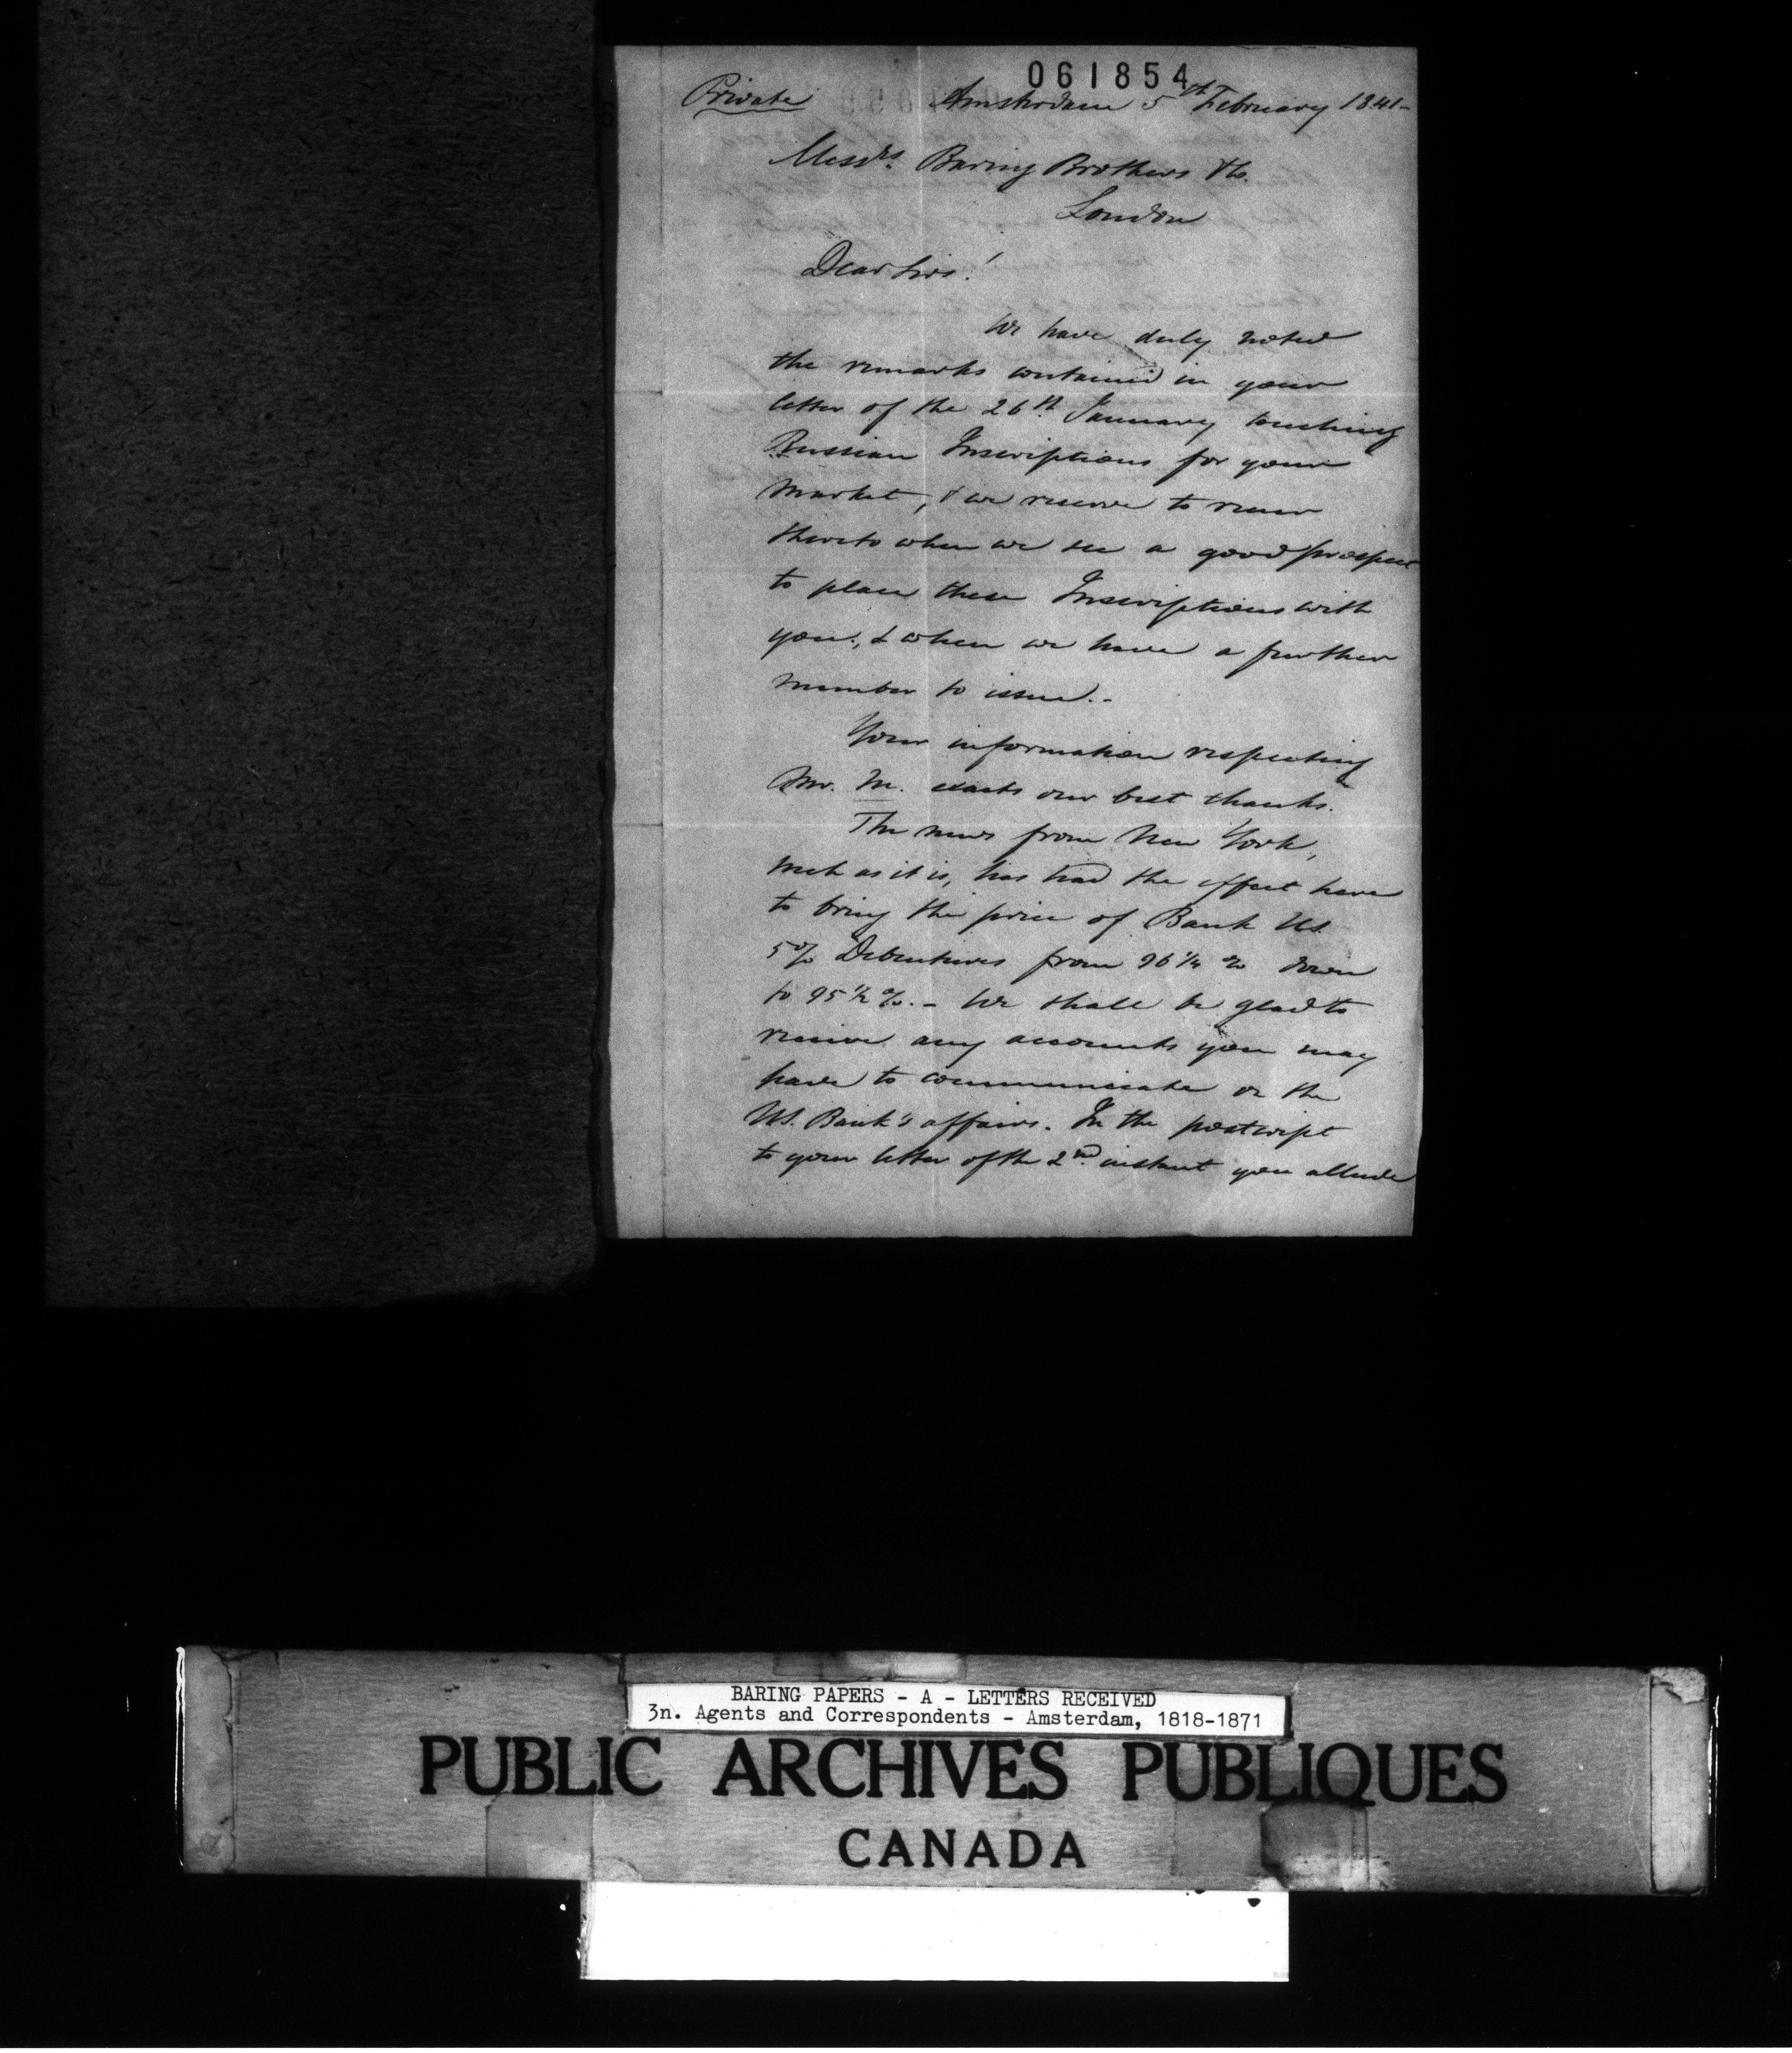 061854
Private Amsterdam 5th February 1841-
Messrs. Baring Brothers & Co.
London
Dear Sirs!
We have duly noted
the remarks contained in your
letter of the 26th January touching
Russian Inscriptions for your
market, & we reserve to recur
thereto when we see a good prospect
to place these Inscriptions with
you, & when we have a further
number to issue.-
Your information respecting
Mr. M. exacts our best thanks.
The news from New York,
such as it is, has had the effect here
to bring the price of Bank US.
5% Debentures from 96 1/4 % down
to 95 1/2 %. - We shall be glad to
receive any accounts you may
have to communicate on the
US. Bank's affairs. In the postcript
to your letter of the 2nd instant you allude
BARING PAPERS - A - LETTERS RECEIVED
3n. Agents and Correspondents - Amsterdam, 1818-1871
PUBLIC ARCHIVES PUBLIQUES
CANADA